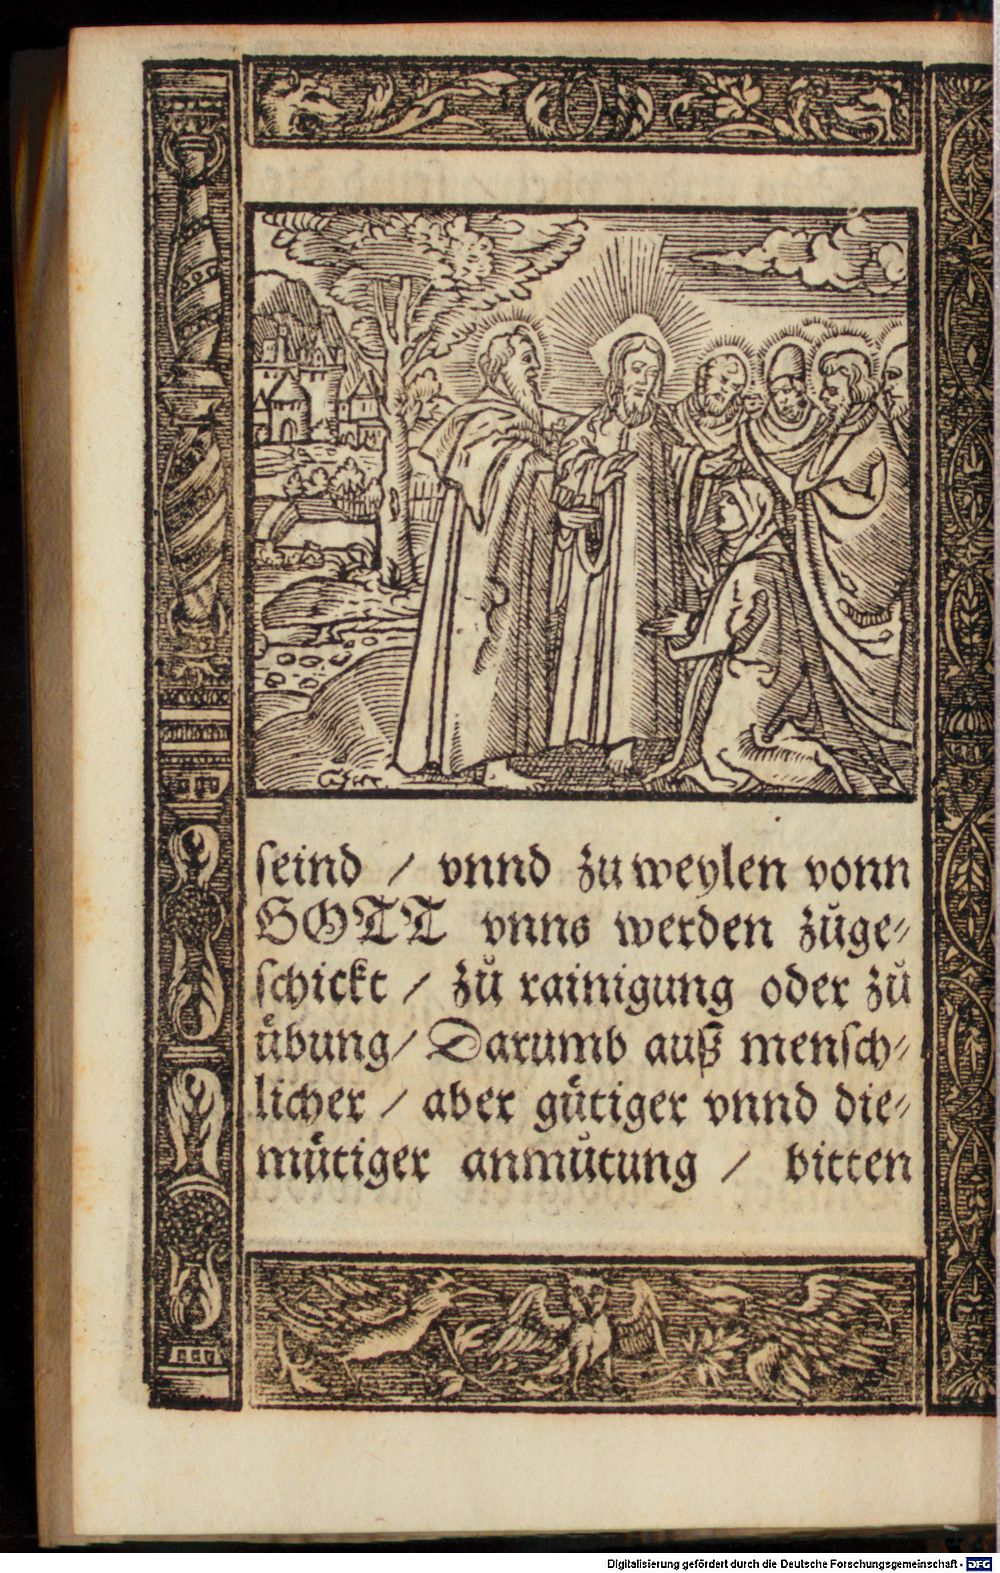 seind / vnnd zuweylen vonn
GOTT vnns werden zůge⸗
schickt / zů rainigung oder zů
uͤbung / Darumb auß mensch⸗
licher / aber guͤtiger vnnd die⸗
muͤtiger anmůtung / bitten
Digitalisierung gefördert durch die Deutsche Forschungsgemeinschaft - DFG